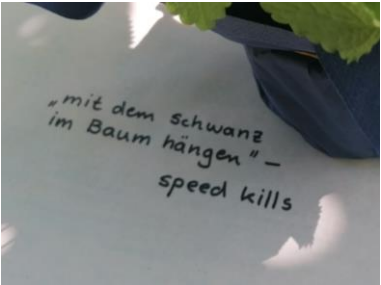 „mit dem schwanz
im Baum hängen" –
speed kills